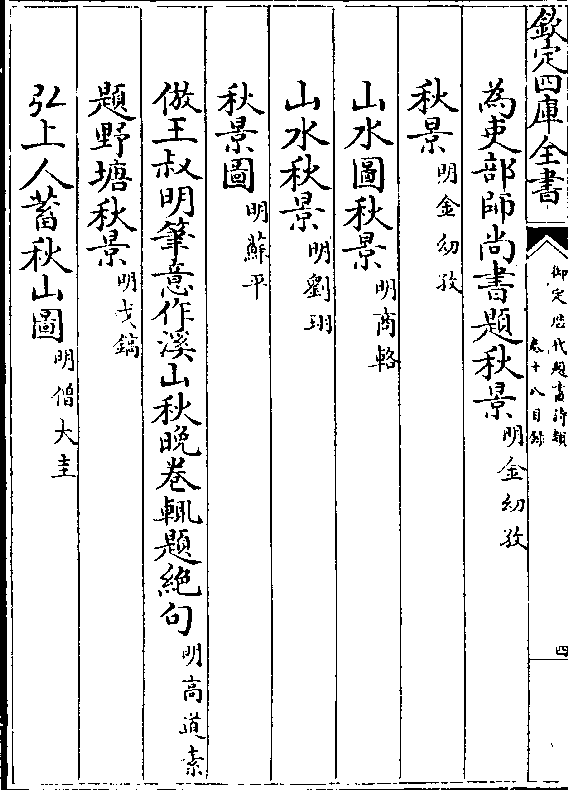 欽定四庫全書
御定歴代題畫詩類
卷十八目錄
四
為吏部師尚書題秋景 明金幼孜
秋景 明金幼孜
山水圖秋景 明商輅
山水秋景 明劉珝
秋景圖 明蘇平
倣王叔明筆意作溪山秋晚卷輒題絶句 明高道素
題野塘秋景 明戈鎬
弘上人蓄秋山圖 明僧大圭